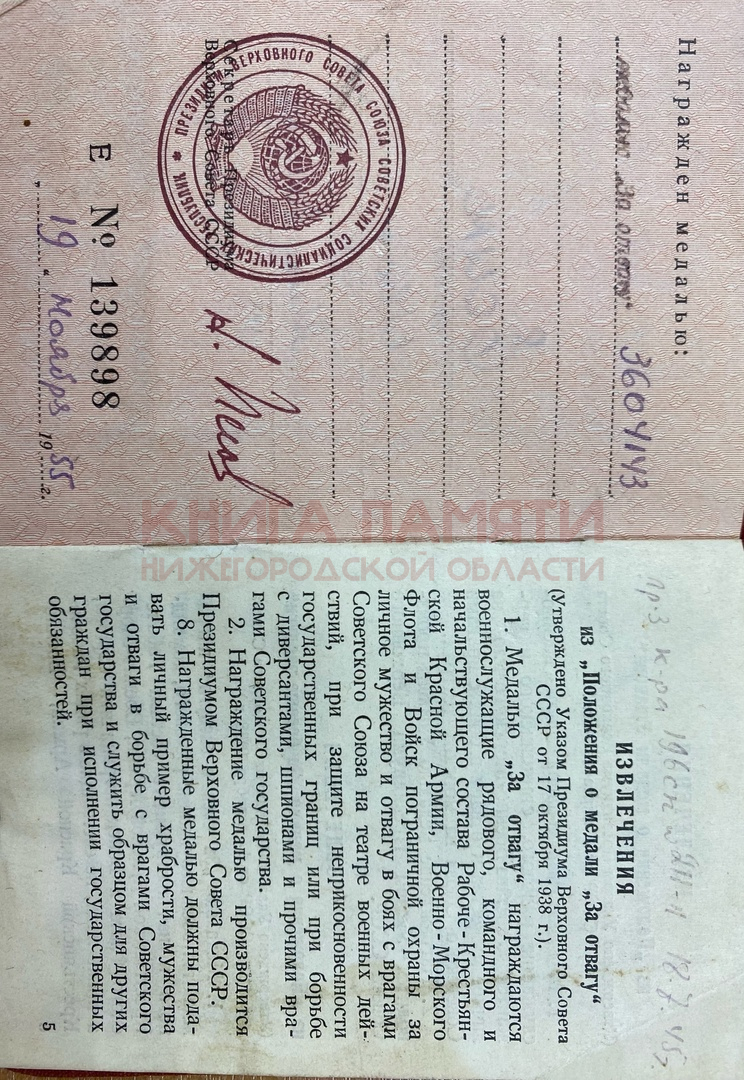 Награжден медалью:
медалью „За отвагу“ 3604143
Секретарь Президиума
Верховного Совета СССР
ПРЕЗИДИУМ ВЕРХОВНОГО СОВЕТА СОЮЗА СОВЕТСКИХ СОЦИАЛИСТИЧЕСКИХ РЕСПУБЛИК
Е № 139898
„19“ Ноября 1955 г.
КНИГА ПАМЯТИ
НИЖЕГОРОДСКОЙ ОБЛАСТИ
пр3. к-ра 196сп 12.7.45г
ИЗВЛЕЧЕНИЯ
из „Положения о медали „За отвагу“
(Утверждено Указом Президиума Верховного Совета
СССР от 17 октября 1938 г.).
1. Медалью „За отвагу“ награждаются
военнослужащие рядового, командного и
начальствующего состава Рабоче-Крестьян-
ской Красной Армии, Военно-Морского
Флота и Войск пограничной охраны за
личное мужество и отвагу в боях с врагами
Советского Союза на театре военных дей-
ствий, при защите неприкосновенности
государственных границ или при борьбе
с диверсантами, шпионами и прочими вра-
гами Советского государства.
2. Награждение медалью производится
Президиумом Верховного Совета СССР:
8. Награжденные медалью должны пода-
вать личный пример храбрости, мужества
и отваги в борьбе с врагами Советского
государства и служить образцом для других
граждан при исполнении государственных
обязанностей.
5